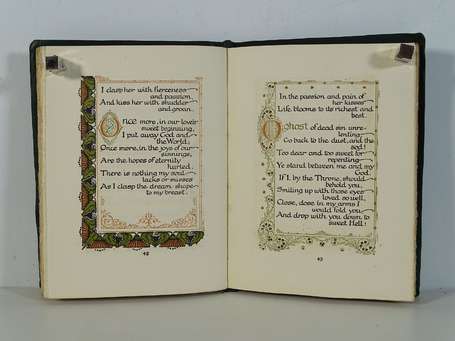 I clasp her with fierceness
and passion,
And kiss her with shudder
and groan.
Once more, in our love's
sweet beginning,
I put away God and
the World;
Once more, in the joys of our
sinnings,
Are the hopes of eternity
hurled.
There is nothing my soul
lacks or misses
As I clasp the dream-shape
to my breast;
42
In the passion and pain of
her kisses
Life blooms to its richest and
best.
O ghost of dead sin unre-
lenting,
Go back to the dust, and the
sod!
Too dear and too sweet for
repenting,
Ye stand between me and my
God.
If I, by the Throne, should
behold you,
Smiling up with those eyes
loved so well,
Close, close in my arms I
would fold you,
And drop with you down to
sweet Hell!
43